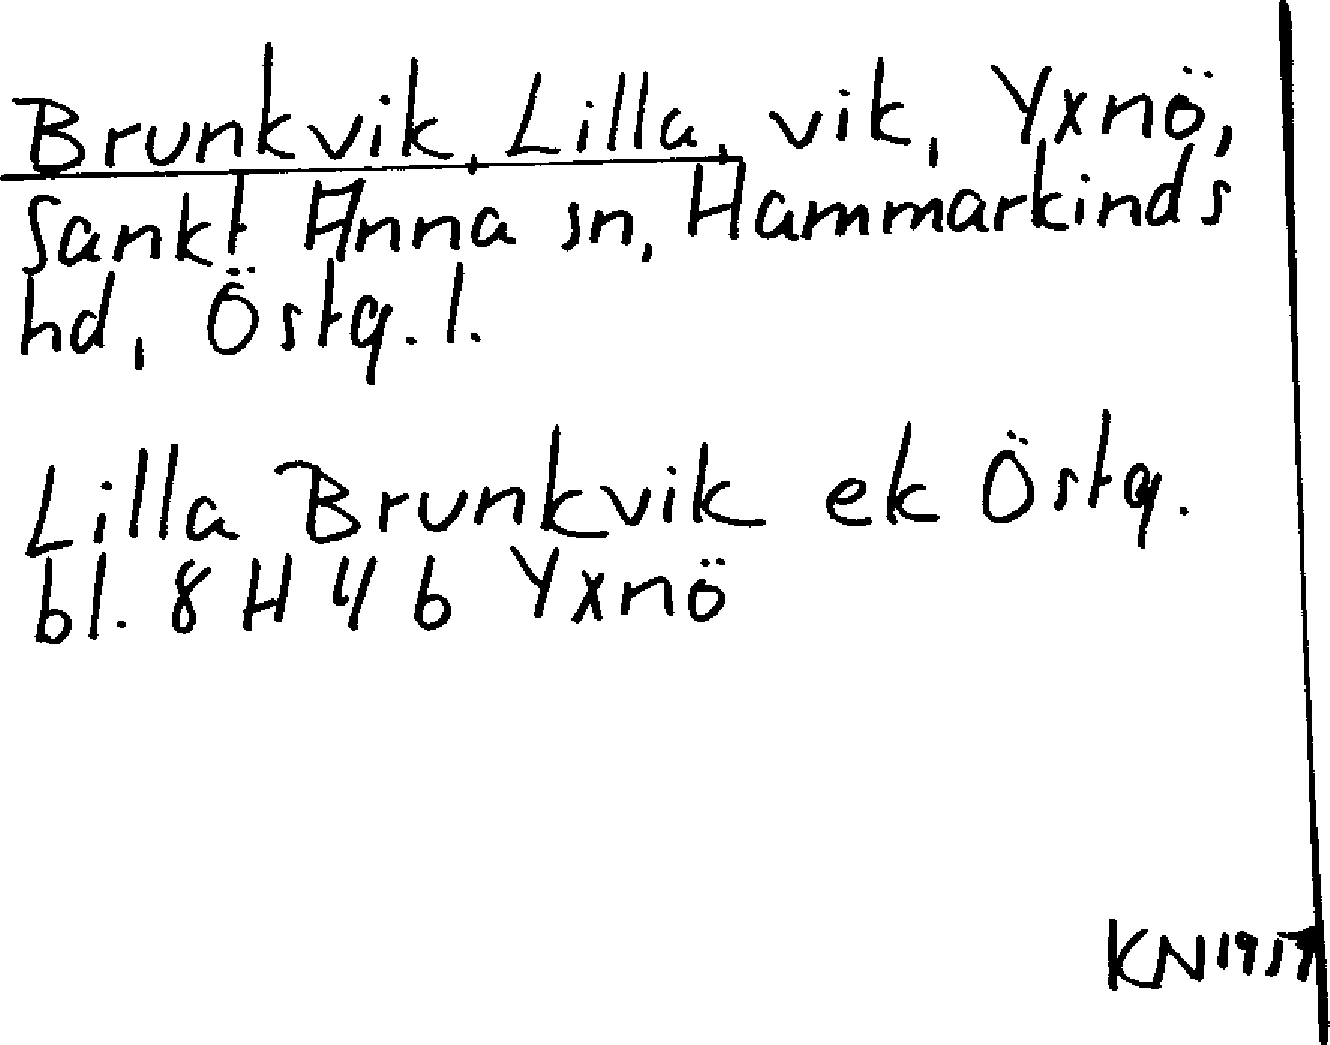 Brunkvik, Lilla, vik, Yxnö,
Sankt Anna sn, Hammarkinds
hd, Östg. l.
Lilla Brunkvik ek Östg.
bl. 8 H 4 b Yxnö
KN